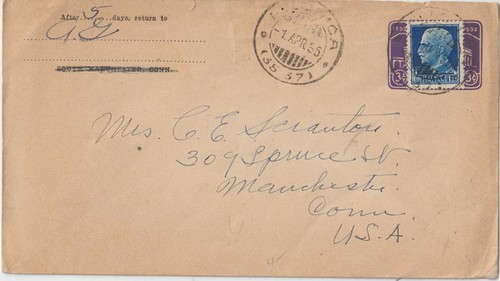 After 5 days, return to
SOUTH MANCHESTER, CONN.
-1 APR 35
(35 37)
3¢ 3¢
Mrs. C. E. Scranton
309 Spruce St.
Manchester
Conn.
U.S.A.